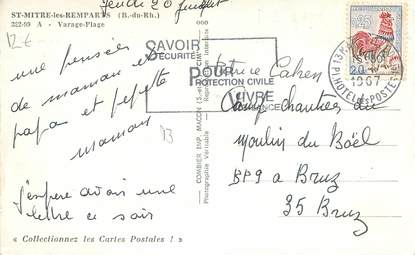 Jeudi 20 juillet
ST-MITRE-les-REMPARTS (B.-du-Rh.)
322-93 A - Varage-Plage
12€
une pensée
de maman et
papa et pepette
maman
13
j'espère avoir une
lettre ce soir
« Collectionnez les Cartes Postales ! »
COMBIER IMP. MACON
Photographie Véritable - Reproduction Interdite
SAVOIR
SÉCURITÉ
POUR
PROTECTION CIVILE
VIVRE
25
20
1967
P1 HOTEL des POSTES
Patrice Cahen
Camp chantier du
moulin du Boël
BP9 à Bruz
35 Bruz